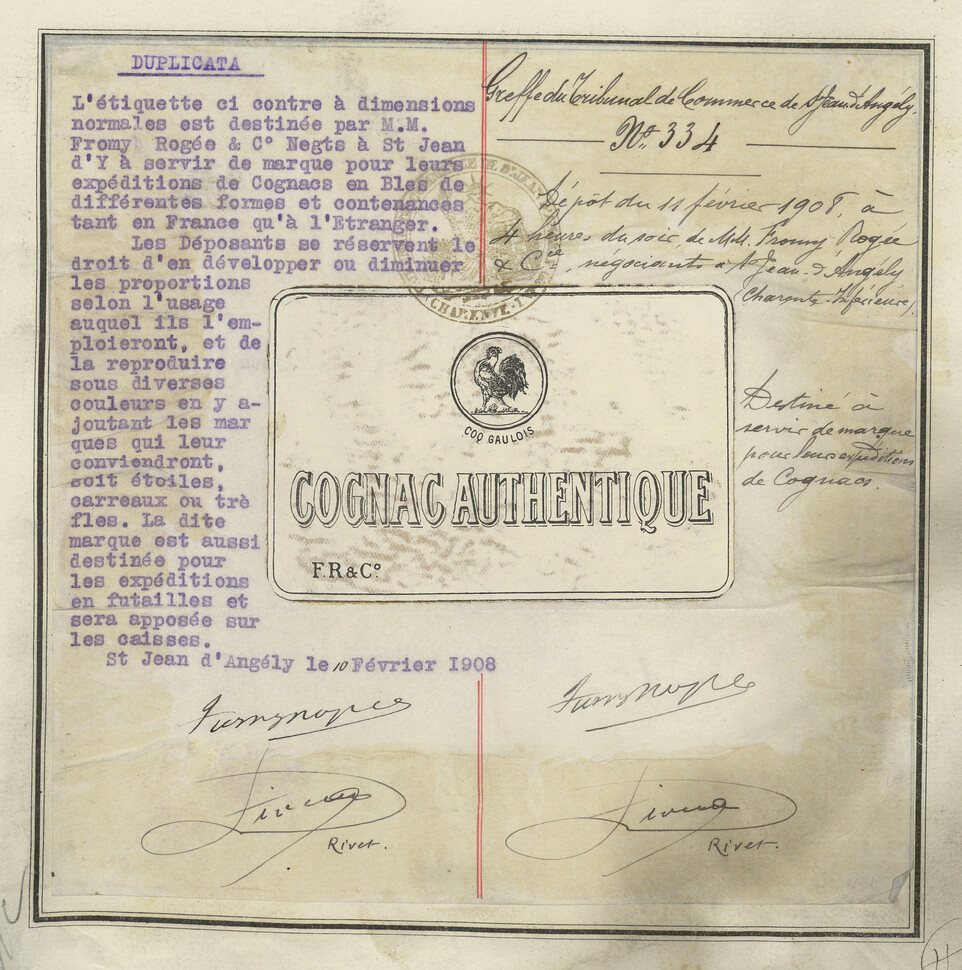 DUPLICATA
L'étiquette ci contre à dimensions
normales est destinée par M.M.
Fromy Rogée & C° Negts à St Jean
d'Y à servir de marque pour leurs
expéditions de Cognacs en Bles de
différentes formes et contenances
tant en France qu'à l'Etranger.
Les Déposants se réservent le
droit d'en développer ou diminuer
les proportions
selon l'usage
auquel ils l'em-
ploieront, et de
la reproduire
sous diverses
couleurs en y a-
joutant les mar
ques qui leur
conviendront,
soit étoiles,
carreaux ou trè
fles. La dite
marque est aussi
destinée pour
les expéditions
en futailles et
sera apposée sur
les caisses.
St Jean d'Angély le 10 Février 1908
Greffe du Tribunal de Commerce de St Jean d'Angély.
N° 334
Dépôt du 11 février 1908, à
4 heures du soir, de MM. Fromy Rogée
& Cie, négociants à St Jean-d'Angély
(Charente-Inférieure).
COQ GAULOIS
COGNAC AUTHENTIQUE
F.R & C°
Destiné à
servir de marque
pour leurs expéditions
de Cognacs.
Fromy Rogée
Fromy Rogée
Rivet.
Rivet.
CHARENTE-INF